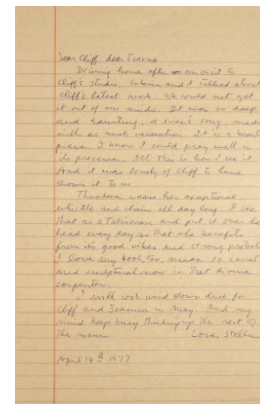 Dear Cliff, dear Joanna
Driving home after our visit to
Cliff's studio, and I talked about
Cliff's latest work. We could not get
it out of our minds. It was so deep
and haunting, a swan's song, made
with as much veneration. It is a
piece I know I could pray well in
its presence. All this is how I see it
And it was lovely of Cliff to have
shown it to us.
wears her exceptional
whistle and chain all day long. I see
that as a talisman and put it over her
head every day so that she benefits
from its good vibes and strong
I love my book, too, made so
and sculptural now is that divine
carpenter.
I will cook wind down duck for
Cliff and Joanna in May. And my
mind keeps busy thinking up the rest of
the menu. Love,
April 14th 1977